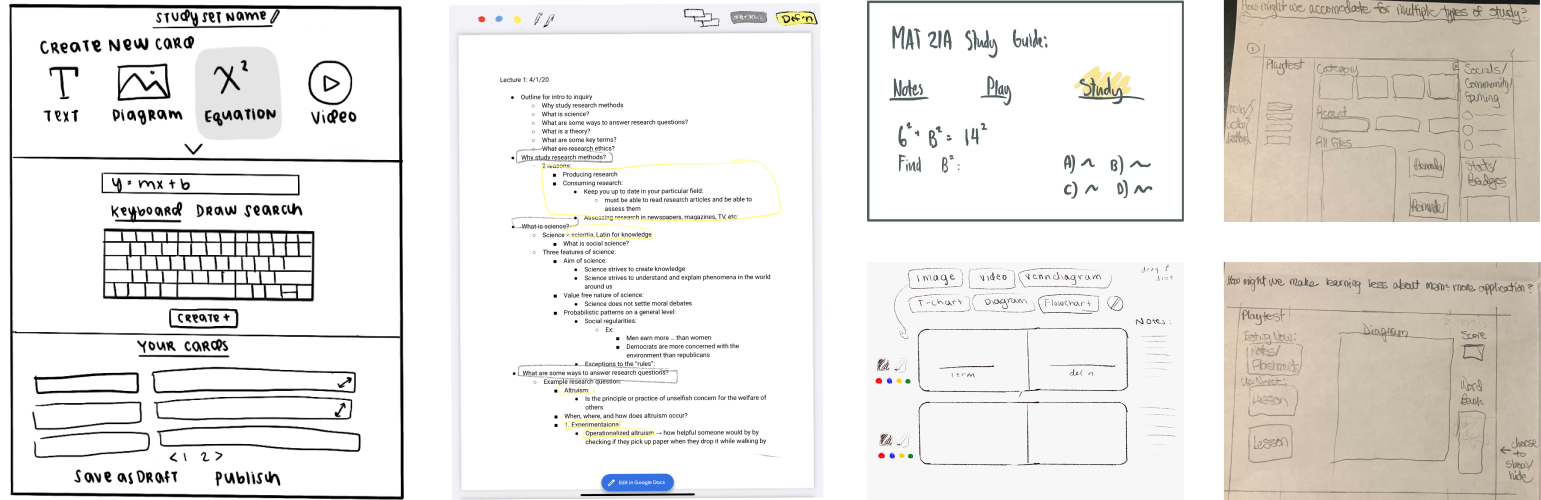 STUDY SET NAME
CREATE NEW CARD
TEXT
DIAGRAM
X²
EQUATION
VIDEO
y = mx + b
KEYBOARD DRAW SEARCH
CREATE +
YOUR CARDS
< 1 2 >
Save as DRAFT PUBLISH
Term
Def'n
Lecture 1: 4/1/20
Outline for intro to inquiry
Why study research methods
What is science?
What are some ways to answer research questions?
What is a theory?
What are some key terms?
What are research ethics?
Why study research methods?
2 reasons:
Producing research
Consuming research:
Keep you up to date in your particular field:
must be able to read research articles and be able to
assess them
Assessing research in newspapers, magazines, TV, etc.
What is science?
Science = scientia, Latin for knowledge
What is social science?
Three features of science:
Aim of science:
Science strives to create knowledge
Science strives to understand and explain phenomena in the world
around us
Value free nature of science:
Science does not settle moral debates
Probabilistic patterns on a general level:
Social regularities:
Ex:
Men earn more .. than women
Democrats are more concerned with the
environment than republicans
Exceptions to the "rules":
What are some ways to answer research questions?
Example research question:
Altruism:
Is the principle or practice of unselfish concern for the welfare of
others
When, where, and how does altruism occur?
1. Experimentaiona
Operationalized altruism → how helpful someone would by by
checking if they pick up paper when they drop it while walking by
Edit in Google Docs
MAT 21A Study Guide:
Notes Play Study
6² + B² = 14²
Find B²:
A) B)
C) D)
image video venn diagram
T-chart Diagram Flowchart
drag &
drop
Notes:
term def'n
How might we accomodate for multiple types of study?
1
Playtest
Category
Socials/
Community/
Earning
Recent
All Files
Reminder
Reminder
Stats/
Badges
How might we make learning less about mem. more application?
Playtest
Diagram
Score
Editing Now:
Notes/
Flashcards/
Up Next:
Lesson
Lesson
Word
Bank
choose
to
show/
hide